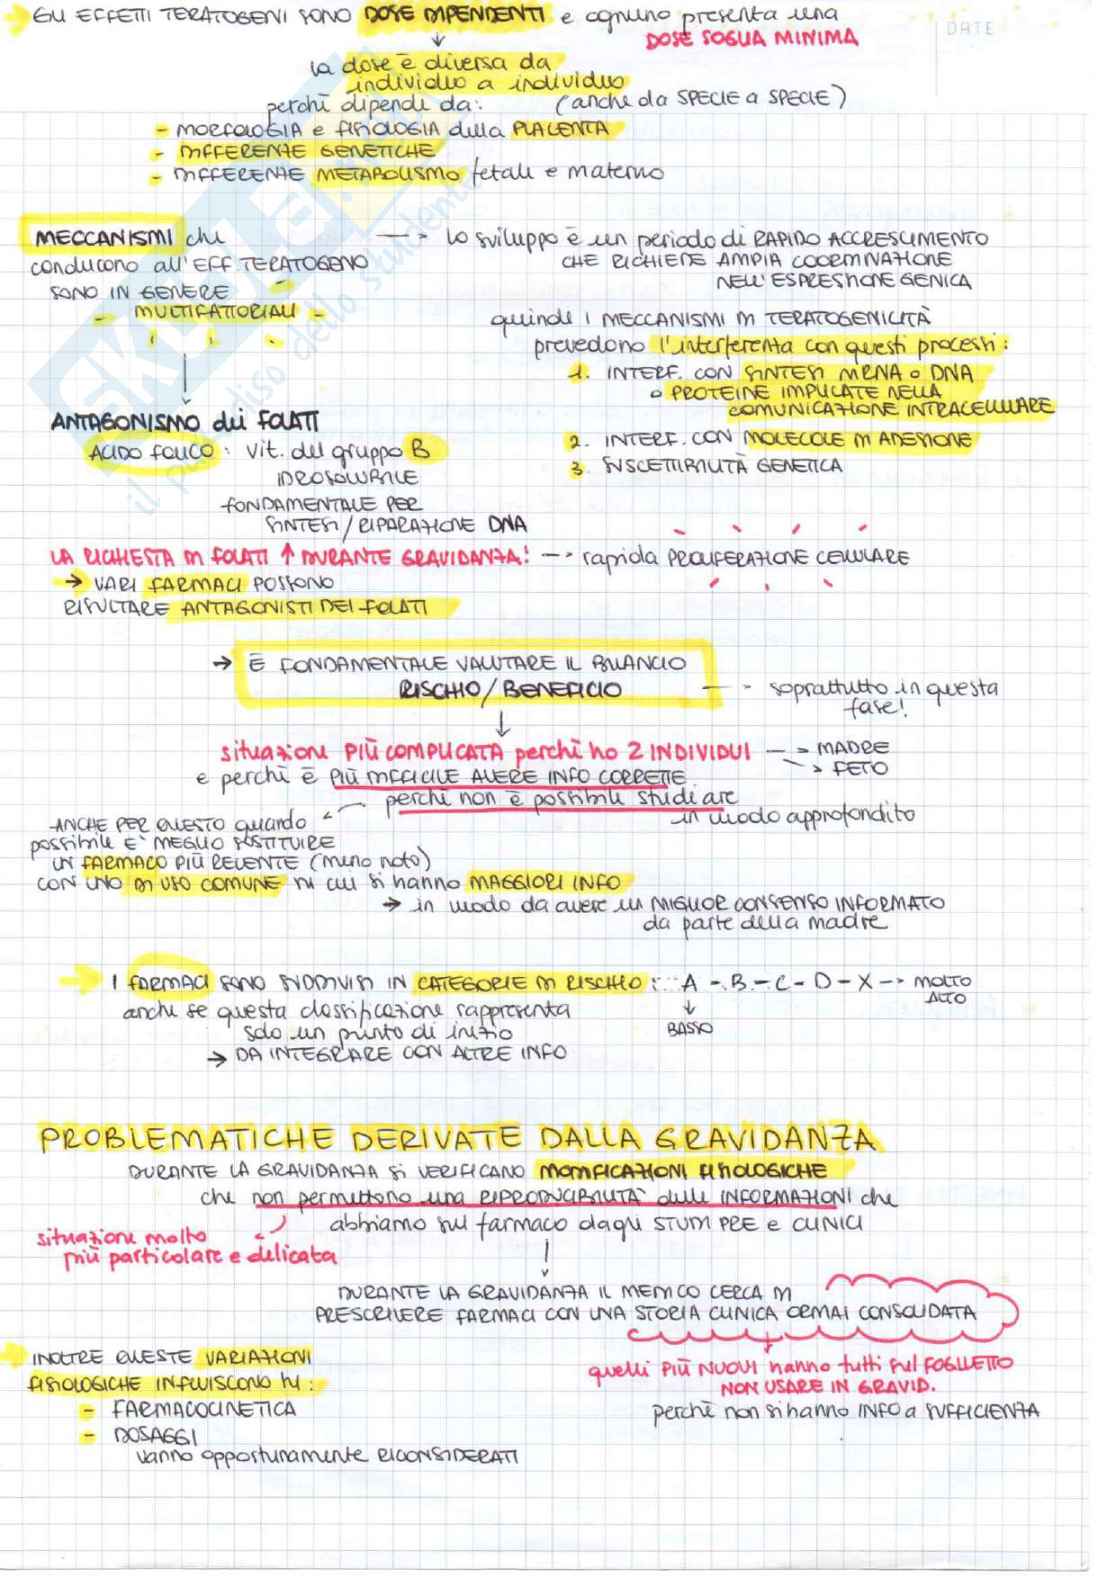 → GLI EFFETTI TERATOGENI SONO DOSE DIPENDENTI e ognuno presenta una
DOSE SOGLIA MINIMA
DATE
↓
la dose è diversa da
individuo a individuo
perchè dipende da: (anche da SPECIE a SPECIE)
- MORFOLOGIA e FISIOLOGIA della PLACENTA
- DIFFERENZE GENETICHE
- DIFFERENZE METABOLISMO fetale e materno
MECCANISMI che
conducono all'EFF. TERATOGENO
SONO IN GENERE
- MULTIFATTORIALI -
→ lo sviluppo è un periodo di RAPIDO ACCRESCIMENTO
CHE RICHIEDE AMPIA COORDINAZIONE
NELL'ESPRESSIONE GENICA
quindi i MECCANISMI DI TERATOGENICITÀ
prevedono l'interferenza con questi processi:
1. INTERF. CON SINTESI MRNA O DNA
O PROTEINE IMPLICATE NELLA
COMUNICAZIONE INTRACELLULARE
2. INTERF. CON MOLECOLE DI ADESIONE
3. SUSCETTIBILITÀ GENETICA
ANTAGONISMO dei FOLATI
ACIDO FOLICO: vit. del gruppo B
IDROSOLUBILE
FONDAMENTALE PER
SINTESI/RIPARAZIONE DNA
LA RICHIESTA DI FOLATI ↑ DURANTE GRAVIDANZA! → rapida PROLIFERAZIONE CELLULARE
→ VARI FARMACI POSSONO
RISULTARE ANTAGONISTI DEI FOLATI
→ È FONDAMENTALE VALUTARE IL BILANCIO
RISCHIO/BENEFICIO → soprattutto in questa
fase!
↓
situazione PIÙ COMPLICATA perchè ho 2 INDIVIDUI → MADRE
→ FETO
e perchè è PIÙ DIFFICILE AVERE INFO CORRETTE
perchè non è possibile studiare
in modo approfondito
ANCHE PER QUESTO quando
possibile È MEGLIO SOSTITUIRE
UN FARMACO PIÙ RECENTE (meno noto)
CON UNO DI USO COMUNE DI CUI si hanno MAGGIORI INFO
→ in modo da avere un MIGLIOR CONSENSO INFORMATO
da parte della madre
→ I FARMACI SONO SUDDIVISI IN CATEGORIE DI RISCHIO: A - B - C - D - X → MOLTO
ALTO
↓
BASSO
anche se questa classificazione rappresenta
solo un punto di inizio
→ DA INTEGRARE CON ALTRE INFO
PROBLEMATICHE DERIVATE DALLA GRAVIDANZA
DURANTE LA GRAVIDANZA SI VERIFICANO MODIFICAZIONI FISIOLOGICHE
che non permettono una RIPRODUCIBILITÀ delle INFORMAZIONI che
abbiamo sul farmaco dagli STUDI PRE e CLINICI
situazione molto
più particolare e delicata
↓
DURANTE LA GRAVIDANZA IL MEDICO CERCA DI
PRESCRIVERE FARMACI CON UNA STORIA CLINICA ORMAI CONSOLIDATA
quelli PIÙ NUOVI hanno tutti sul FOGLIETTO
NON USARE IN GRAVID.
perchè non si hanno INFO a SUFFICIENZA
→ INOLTRE QUESTE VARIAZIONI
FISIOLOGICHE INFLUISCONO SU:
- FARMACOCINETICA
- DOSAGGI
vanno opportunamente RICONSIDERATI
SKUOLA.net
il paradiso dello studente